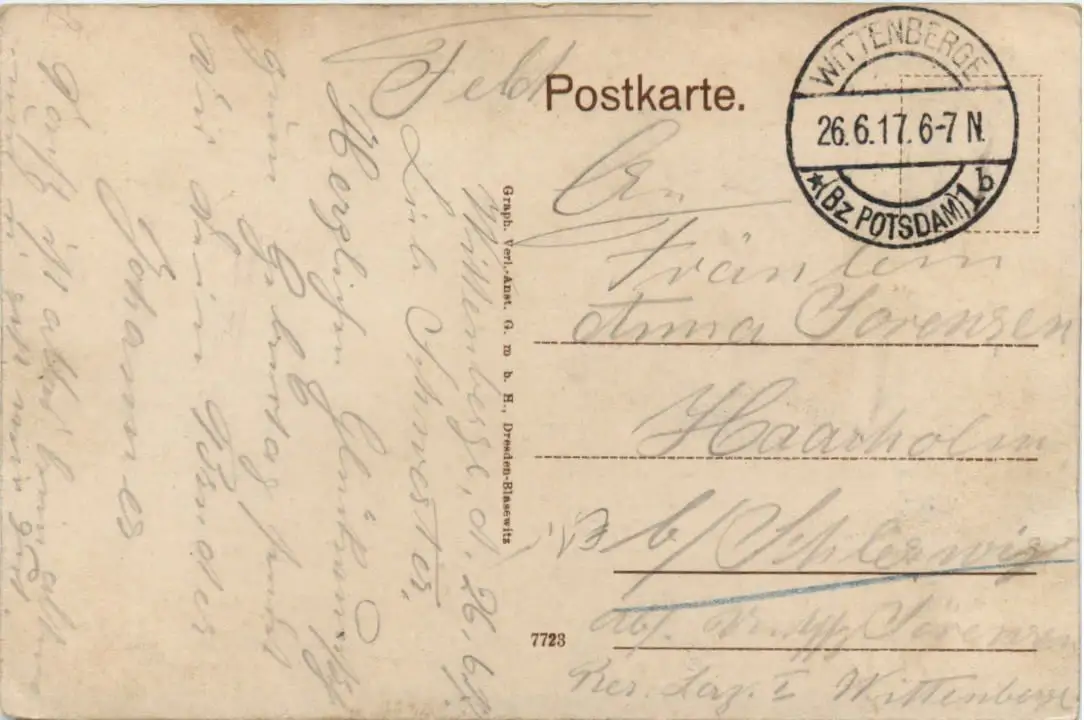 Feld Postkarte.
WITTENBERGE
26.6.17. 6-7 N.
* (Bz POTSDAM) 1b
An
Fräulein
Anna Sörensen
Haarholm
b/ Schleswig
Abs. Sörensen
Res. Laz. I Wittenberge
Wittenberge, d. 26.6.17.
Liebe Schwester,
Herzlichen Glückwunsch
zum Geburtstag sendet
dir dein Bruder
Johannes
Graph. Verl.-Anst. G. m b. H., Dresden-Blasewitz
7723